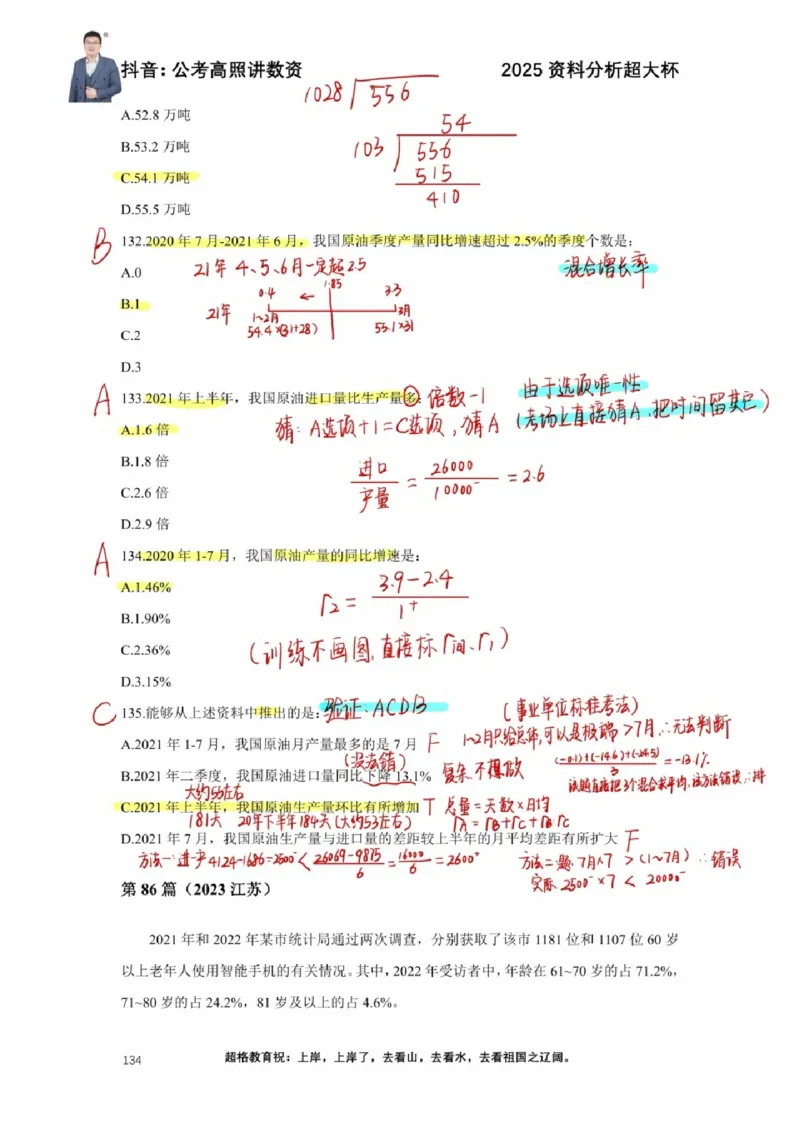 抖音：公考高照讲数资
2025 资料分析超大杯
1028 556
A.52.8 万吨
54
B.53.2 万吨
103 556
515
C.54.1 万吨
410
D.55.5 万吨
B 132.2020 年 7 月-2021 年 6 月，我国原油季度产量同比增速超过 2.5%的季度个数是：
A.0
21年 4、5、6月一定超2.5
混合增长率
0.4 ← 1.85 3.3
B.1
21年 1~2月 3月
54.4×(31+28) 55.1×31
C.2
D.3
A 133.2021 年上半年，我国原油进口量比生产量多： 倍数-1
由于选项唯一性
A.1.6 倍
猜：A选项+1=C选项，猜A
(考场上直接猜A，把时间留其它)
B.1.8 倍
进口/产量 = 26000/10000⁻ = 2.6
C.2.6 倍
D.2.9 倍
A 134.2020 年 1-7 月，我国原油产量的同比增速是：
A.1.46%
r₂ = 3.9-2.4/1⁺
B.1.90%
C.2.36%
(训练不画图，直接标r间、r₁)
D.3.15%
C 135.能够从上述资料中推出的是： 验证：ACDB
(事业单位标准考法)
A.2021 年 1-7 月，我国原油月产量最多的是 7 月 F 1~2月只给总体，可以是极端 >7月，∴无法判断
(没法错)
B.2021 年二季度，我国原油进口量同比下降 13.1% 复杂，不想做
(-0.1)+(-14.6)+(-24.5)/3 = -13.1%
大约55左右
C.2021 年上半年，我国原油生产量环比有所增加 T 总量=天数×月均
181天 20年下半年184天(大约53左右)
D.2021 年 7 月，我国原油生产量与进口量的差距较上半年的月平均差距有所扩大 F
方法一：进-产 4124-1686=2500⁻ < 26069-9875/6 = 16000/6 = 2600⁺
方法二：题：7月×7 > (1~7月) ∴错误
实际 2500⁻×7 < 20000⁻
第 86 篇（2023 江苏）
2021 年和 2022 年某市统计局通过两次调查，分别获取了该市 1181 位和 1107 位 60 岁
以上老年人使用智能手机的有关情况。其中，2022 年受访者中，年龄在 61~70 岁的占 71.2%，
71~80 岁的占 24.2%，81 岁及以上的占 4.6%。
134
超格教育祝：上岸，上岸了，去看山，去看水，去看祖国之辽阔。